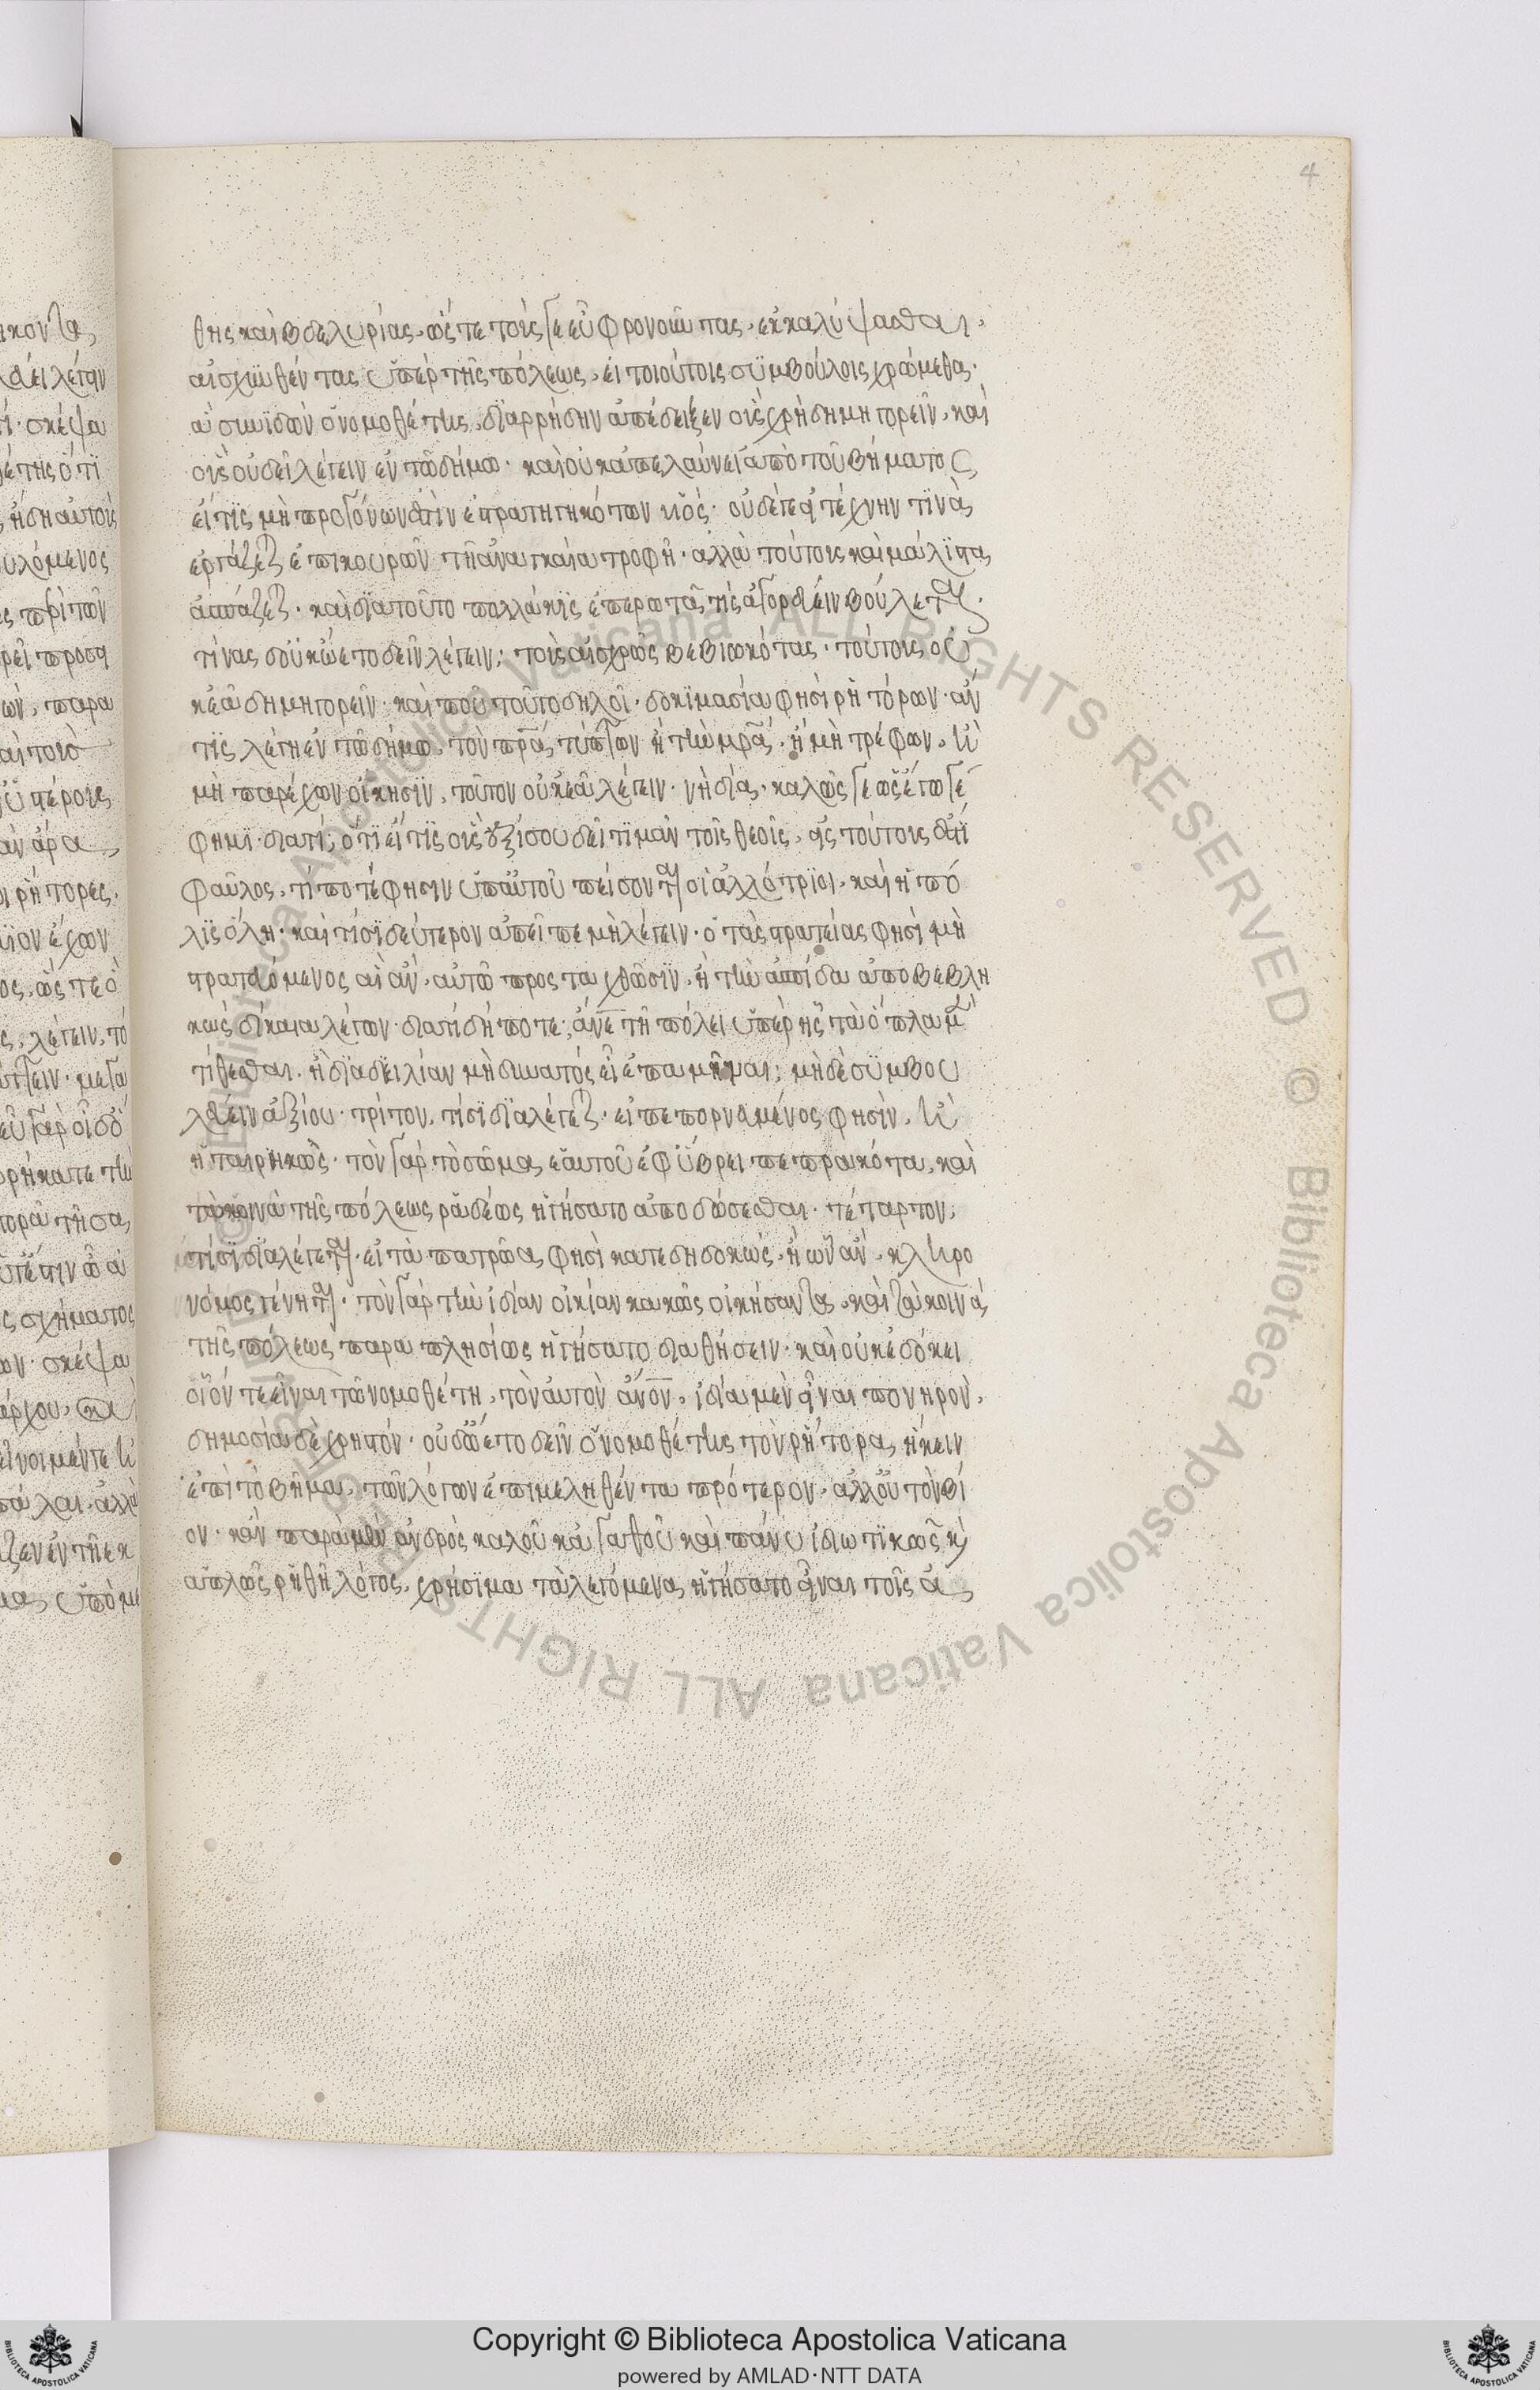 4
θης καὶ βδελυρίας· ὥστε τοὺς γε εὖ φρονοῦντας, ἐκκαλύψασθαι,
αἰσχυνθέντας ὑπὲρ τῆς πόλεως, εἰ τοιούτοις συμβούλοις χρώμεθα·
ἃ συνιδὼν ὁ νομοθέτης, διαρρήδην ἀπέδειξεν οὓς χρὴ δημηγορεῖν, καὶ
οὓς οὐ δεῖ λέγειν ἐν τῷ δήμῳ· καὶ οὐκ ἀπελαύνει ἀπὸ τοῦ βήματος,
εἴ τις μὴ προγόνων ἐστὶν ἐστρατηγηκότων υἱός· οὐδέ γε εἰ τέχνην τινὰ
ἐργάζεται ἐπικουρῶν τῇ ἀναγκαίᾳ τροφῇ· ἀλλὰ τούτους καὶ μάλιστα
ἀσπάζεται· καὶ διὰ τοῦτο πολλάκις ἐπερωτᾷ τίς ἀγορεύειν βούλεται·
τίνας δ' οὐκ ᾤετο δεῖν λέγειν; τοὺς αἰσχρῶς βεβιωκότας· τούτους οὐ
κ ἐᾷ δημηγορεῖν· καὶ ποῦ τοῦτο δηλοῖ· δοκιμασία φησὶ ῥητόρων· ἄν
τις λέγῃ ἐν τῷ δήμῳ, τὸν πρα τύπτων ἢ τὴν μρα, ἢ μὴ τρέφων, ἢ
μὴ παρέχων οἴκησιν, τοῦτον οὐκ ἐᾷ λέγειν· νὴ δία, καλῶς γε ὡς ἔγωγέ
φημι· διατί; ὅτι εἴ τις οὓς ἐξίσου δεῖ τιμᾶν τοῖς θεοῖς, εἰς τούτους ἐστὶ
φαῦλος, τί ποτέ φησιν ὑπ' αὐτοῦ πείσονται οἱ ἀλλότριοι, καὶ ἡ πό
λις ὅλη· καὶ τίσι δεύτερον ἀπεῖπε μὴ λέγειν· ὁ τὰς στρατείας φησὶ μὴ
στρατευόμενος αἳ ἂν, αὐτῷ προσταχθῶσιν, ἢ τὴν ἀσπίδα ἀποβεβλη
κώς δίκαια λέγων· διατί δήποτε, ἄνε τῇ πόλει ὑπὲρ ἧς τὰ ὅπλα μὴ
τίθεσαι, ἢ διὰ δειλίαν μὴ δυνατός εἶ ἐπαμῦναι; μὴ δὲ συμβου
λεύειν ἀξίου· τρίτον, τίσι διαλέγεται· εἰ πεπορνευμένος φησὶν, ἢ
ἡταιρηκώς· τὸν γὰρ τὸ σῶμα ἑαυτοῦ ἐφ' ὕβρει πεπρακότα, καὶ
τὰ κοινὰ τῆς πόλεως ῥᾳδίως ἡγήσατο ἀποδώσεσθαι· τέταρτον,
τίσι διαλέγεται· εἰ τὰ πατρῷα φησὶ κατεδηδοκώς, ἢ ὧν ἂν, κληρο
νόμος γένηται· τὸν γὰρ τὴν ἰδίαν οἰκίαν κακῶς οἰκήσαντα, καὶ τὰ κοινά
τῆς πόλεως παραπλησίως ἡγήσατο διαθήσειν· καὶ οὐκ ἐδόκει
οἷόν τε εἶναι τῷ νομοθέτῃ, τὸν αὐτὸν ἄνον, ἰδίᾳ μὲν εἶναι πονηρὸν,
δημοσίᾳ δὲ χρηστόν· οὐδ' ᾤετο δεῖν ὁ νομοθέτης τὸν ῥήτορα, ἥκειν
ἐπὶ τὸ βῆμα, τῶν λόγων ἐπιμεληθέντα πρότερον, ἀλλ' οὐ τὸν βί
ον· κἂν παρὰ μὲν ἀνδρὸς καλοῦ κἀγαθοῦ κἂν πάνυ ἰδιωτικῶς καὶ
ἁπλῶς ῥηθῇ λόγος, χρήσιμα τὰ λεγόμενα ἡγήσατο εἶναι τοῖς ἀ
Biblioteca Apostolica Vaticana ALL RIGHTS RESERVED © Biblioteca Apostolica Vaticana ALL RIGHTS RESERVED ©
Copyright © Biblioteca Apostolica Vaticana
powered by AMLAD·NTT DATA
BIBLIOTECA APOSTOLICA VATICANA
BIBLIOTECA APOSTOLICA VATICANA